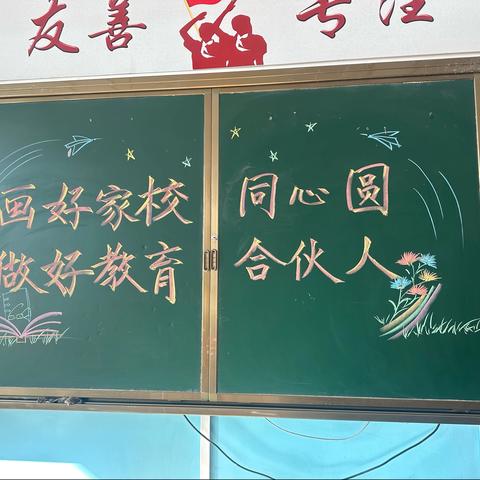 友善 专注
画好家校 同心圆
做好教育 合伙人